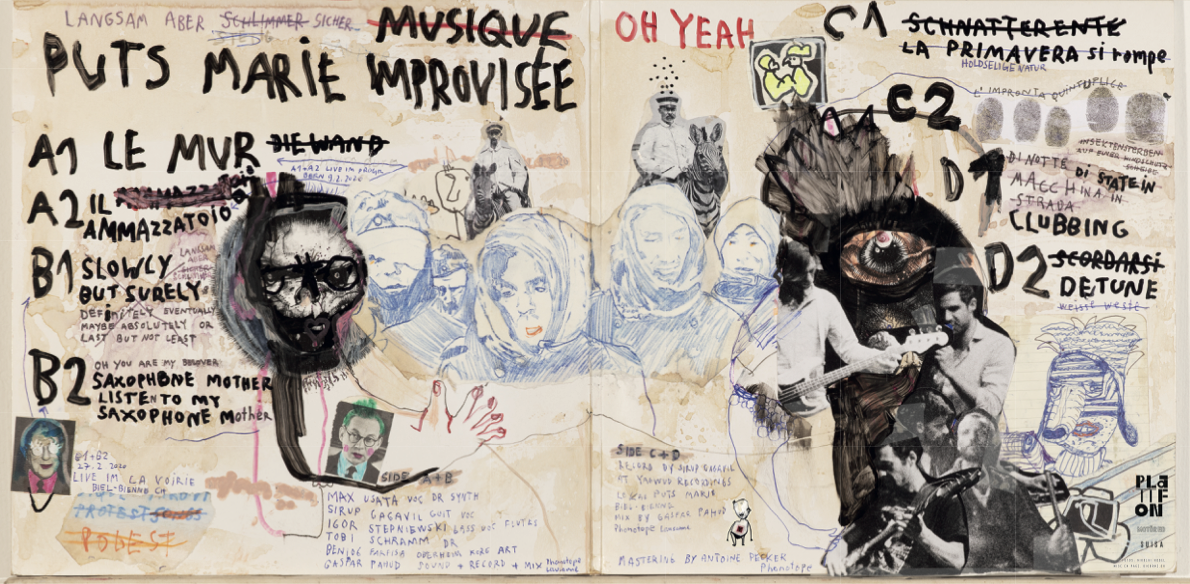 LANGSAM ABER SCHLIMMER SICHER
MUSIQUE
PUTS MARIE IMPROVISÉE
A1 LE MUR DIE WAND
A1+A2 LIVE IM PROGR
BERN 9.2.2020
A2 IL
AMMAZZATOIO
B1 SLOWLY
BUT SURELY
LANGSAM
ABER
DEFINITELY EVENTUALLY
MAYBE ABSOLUTELY OR
LAST BUT NOT LEAST
B2 OH YOU ARE MY
SAXOPHONE MOTHER
LISTEN TO MY
SAXOPHONE MOTHER
B1+B2
27.2.2020
LIVE IM LA VOIRIE
BIEL-BIENNE CH
PROTESTSONGS
PODEST
SIDE A+B
MAX USATA VOC DR SYNTH
SIRUP GAGAVIL GUIT VOC
IGOR STEPNIEWSKI BASS VOC FLUTES
TOBI SCHRAMM DR
BENI06 FARFISA OBERHEIM KORG ART
GASPAR PAHUD SOUND + RECORD + MIX Phonotope
Lausanne
OH YEAH
C1 SCHNATTERENTE
LA PRIMAVERA si rompe
HOLDSELIGE NATUR
C2 L'IMPRONTA QUINTUPLICE
INSEKTENSTERBEN
AUF EURER WINDSCHUTZ-
SCHEIBE
D1 DI NOTTE
DI STATE IN
MACCHINA IN
STRADA
CLUBBING
D2 SCORDARSI
DETUNE
weisse weste
SIDE C+D
RECORD BY SIRUP GAGAVIL
AT YAWUUD RECORDINGS
LOKAL PUTS MARIE
BIEL-BIENNE
MIX BY GASPAR PAHUD
Phonotope Lausanne
MASTERING BY ANTOINE PECKER
Phonotope
PLa
TF
ON
SUISA